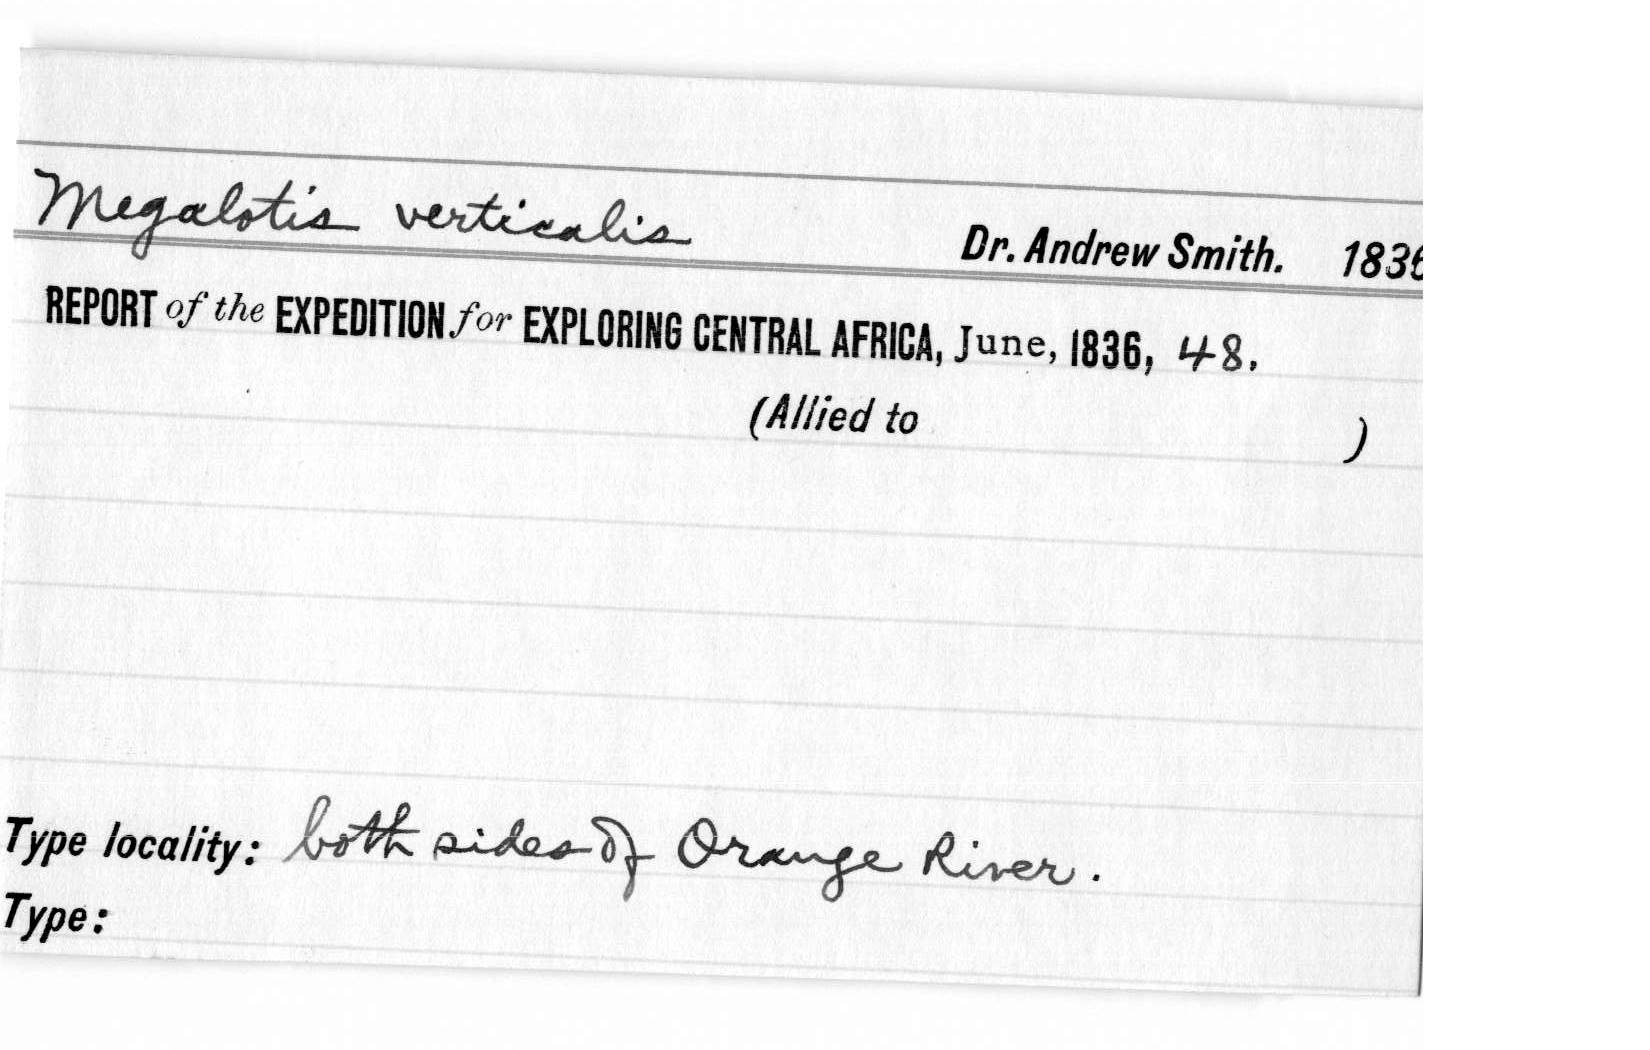 Megalotis verticalis Dr. Andrew Smith. 1836
REPORT of the EXPEDITION for EXPLORING CENTRAL AFRICA, June, 1836, 48.
(Allied to )
Type locality: both sides of Orange River.
Type: